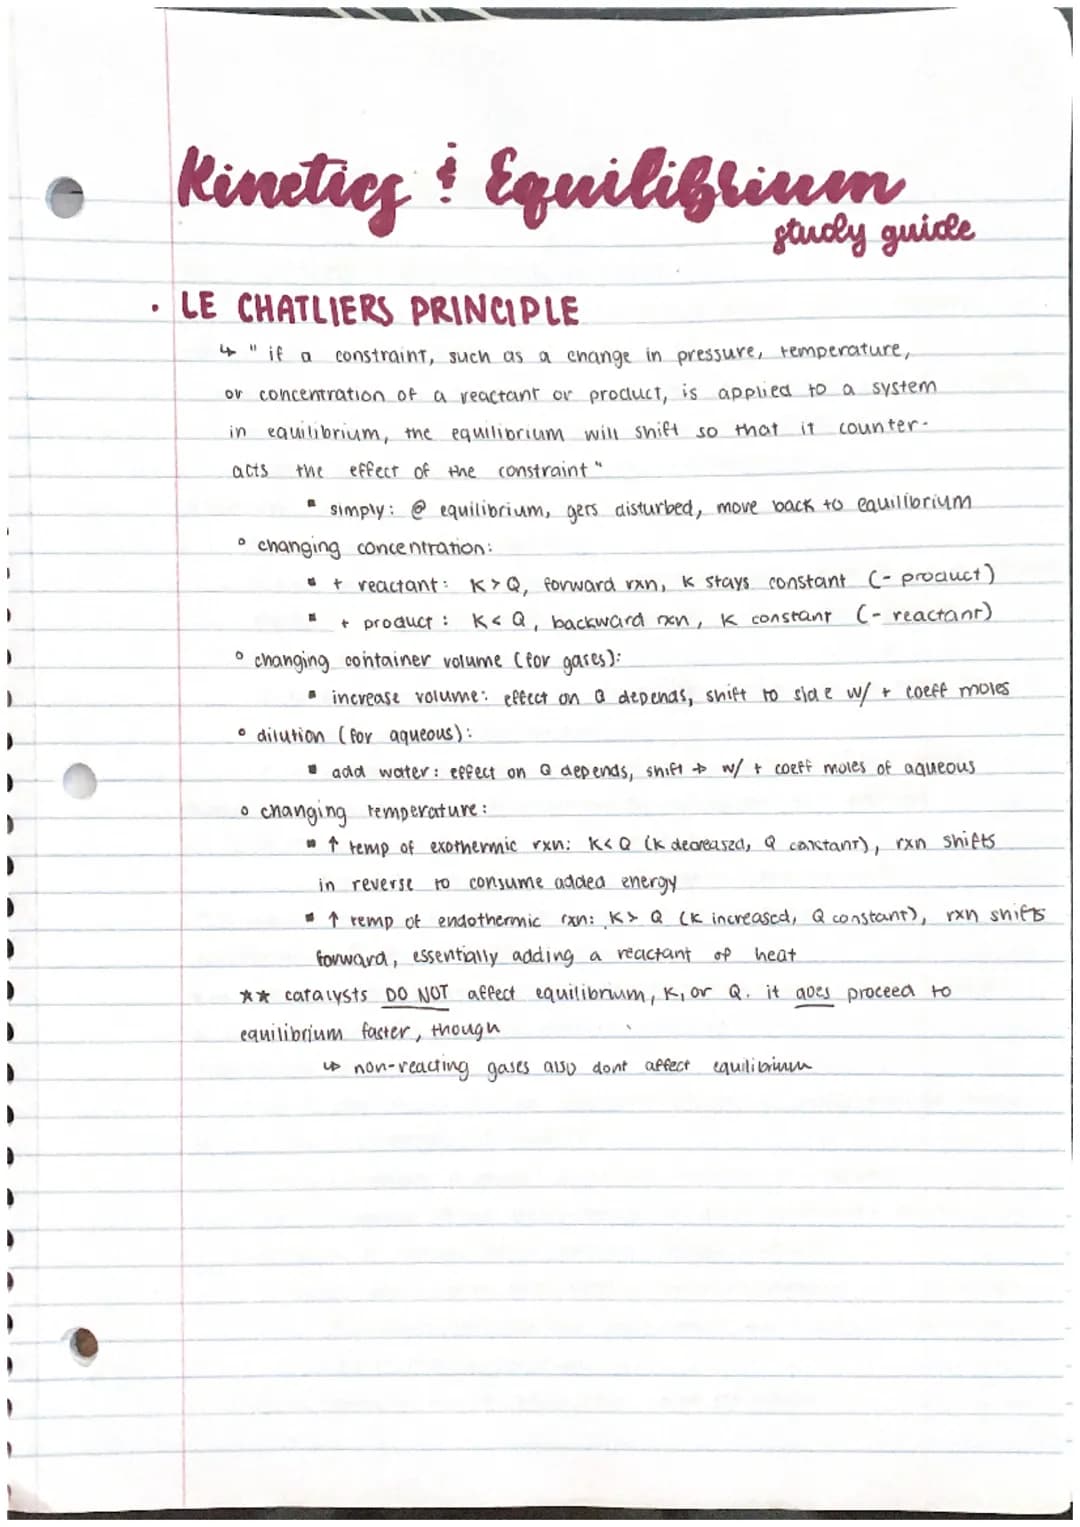 Kinetics & Equilibrium
study guide
• LE CHATLIERS PRINCIPLE
↳ "if a constraint, such as a change in pressure, temperature,
or concentration of a reactant or product, is applied to a system
in equilibrium, the equilibrium will shift so that it counter-
acts the effect of the constraint"
▪ simply: @ equilibrium, gets disturbed, move back to equilibrium
° changing concentration:
▪ + reactant: K > Q, forward rxn, K stays constant (- product)
▪ + product: K < Q, backward rxn, K constant (- reactant)
° changing container volume (for gases):
▪ increase volume: effect on Q depends, shift to side w/ + coeff moles
° dilution (for aqueous):
▪ add water: effect on Q depends, shift → w/ + coeff moles of aqueous
° changing temperature:
▪ ↑ temp of exothermic rxn: K < Q (K decreased, Q constant), rxn shifts
in reverse to consume added energy
▪ ↑ temp of endothermic rxn: K > Q (K increased, Q constant), rxn shifts
forward, essentially adding a reactant of heat
** catalysts DO NOT affect equilibrium, K, or Q. it does proceed to
equilibrium faster, though
↳ non-reacting gases also dont affect equilibrium